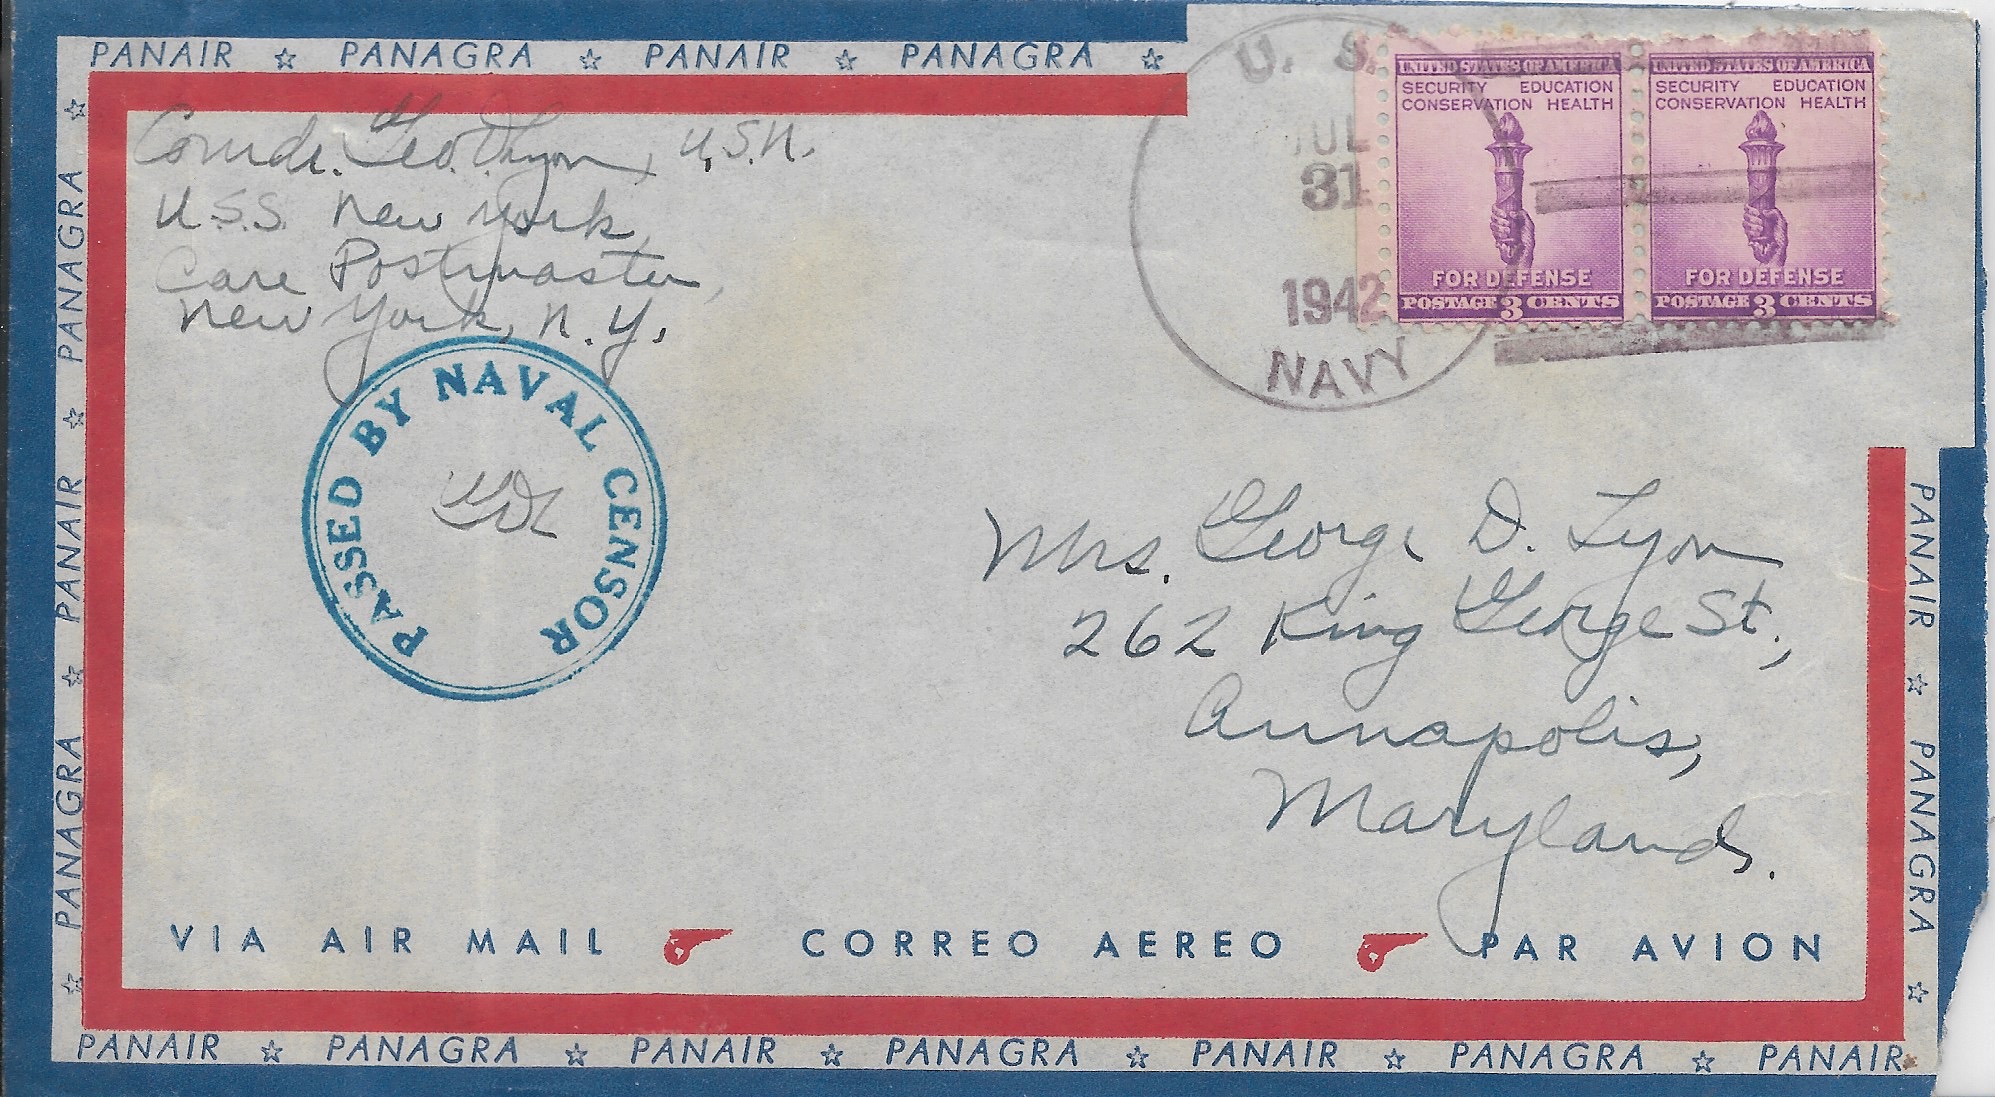 PANAIR ☆ PANAGRA ☆ PANAIR ☆ PANAGRA ☆
Comdr. Geo. D. Lyon, U.S.N.
U.S.S. New York,
Care Postmaster,
New York, N.Y.
U. S.
JUL
31
1942
NAVY
UNITED STATES OF AMERICA
SECURITY EDUCATION
CONSERVATION HEALTH
FOR DEFENSE
POSTAGE 3 CENTS
UNITED STATES OF AMERICA
SECURITY EDUCATION
CONSERVATION HEALTH
FOR DEFENSE
POSTAGE 3 CENTS
PASSED BY NAVAL CENSOR
GDL
Mrs. George D. Lyon
262 King George St.,
Annapolis,
Maryland.
VIA AIR MAIL CORREO AEREO PAR AVION
☆ PANAGRA ☆ PANAIR ☆ PANAGRA ☆ PANAGRA ☆
PANAIR ☆ PANAGRA ☆
PANAIR ☆ PANAGRA ☆ PANAIR ☆ PANAGRA ☆ PANAIR ☆ PANAGRA ☆ PANAIR